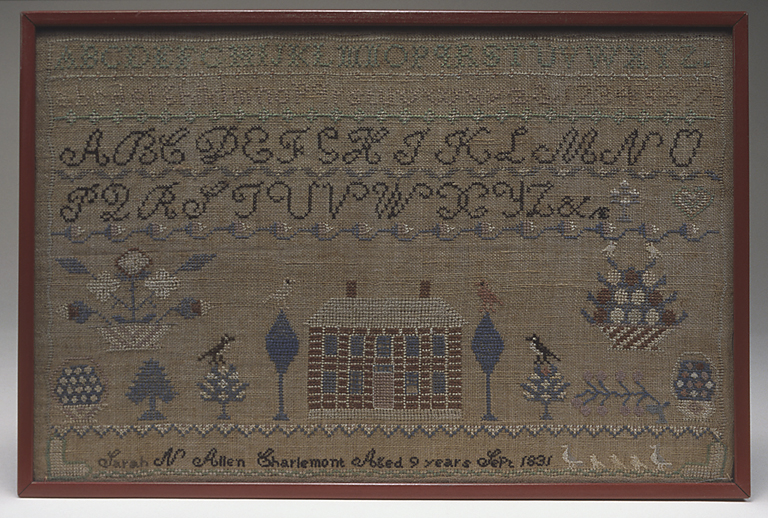 A B C D E F G H I J K L M N O P Q R S T U V W X Y Z
A B C D E F G H I K L M N O
P Q R S T U V W X Y Z &c
Sarah N Allen Charlemont Aged 9 years Sept 1831